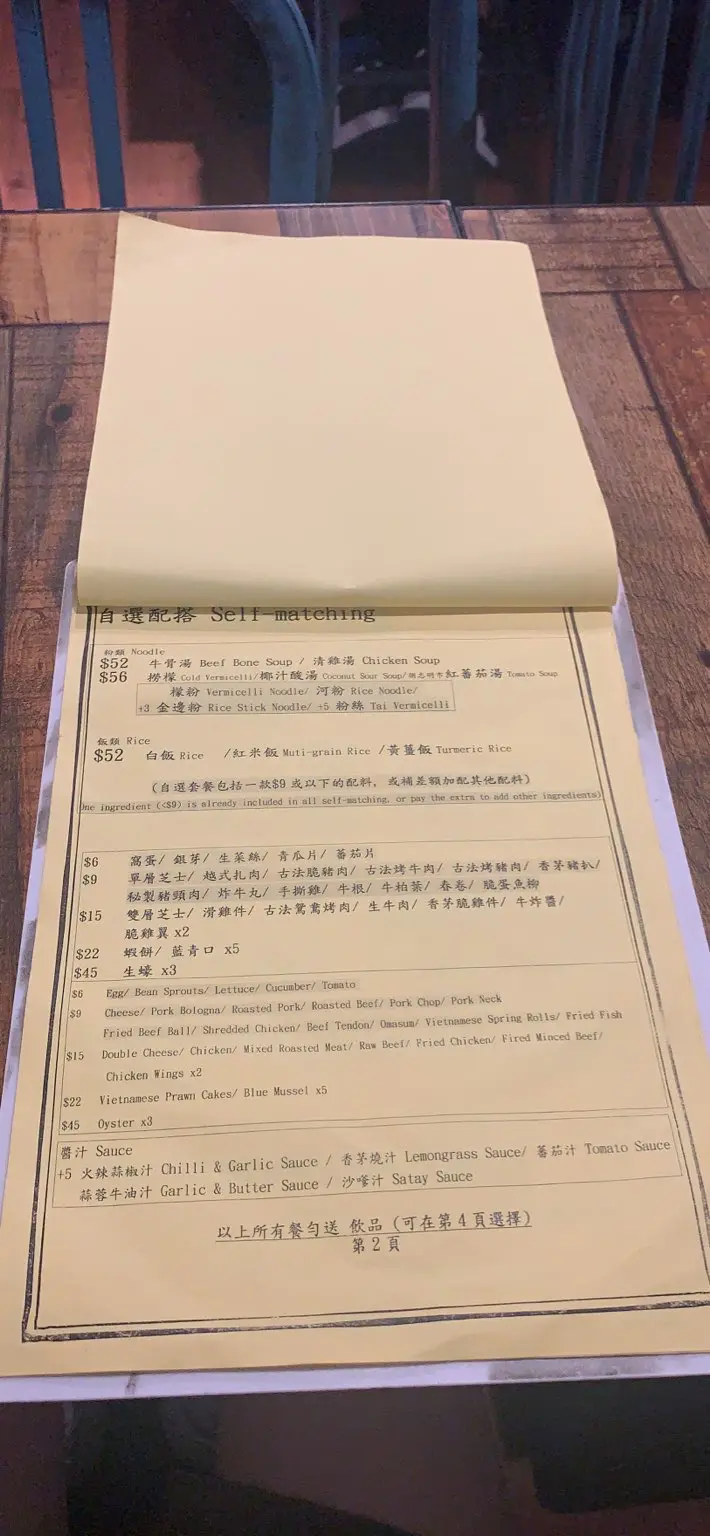 自選配搭 Self-matching
粉類 Noodle
$52 牛骨湯 Beef Bone Soup / 清雞湯 Chicken Soup
$56 撈檬 Cold Vermicelli/椰汁酸湯 Coconut Sour Soup/胡志明市紅蕃茄湯 Tomato Soup
檬粉 Vermicelli Noodle/ 河粉 Rice Noodle/
+3 金邊粉 Rice Stick Noodle/ +5 粉絲 Tai Vermicelli
飯類 Rice
$52 白飯 Rice /紅米飯 Muti-grain Rice /黃薑飯 Turmeric Rice
(自選套餐包括一款$9 或以下的配料, 或補差額加配其他配料)
One ingredient (<$9) is already included in all self-matching, or pay the extra to add other ingredients)
$6 窩蛋/ 銀芽/ 生菜絲/ 青瓜片/ 蕃茄片
$9 單層芝士/ 越式扎肉/ 古法脆豬肉/ 古法烤牛肉/ 古法烤豬肉/ 香茅豬扒/
秘製豬頸肉/ 炸牛丸/ 手撕雞/ 牛根/ 牛柏葉/ 春卷/ 脆蛋魚柳
$15 雙層芝士/ 滑雞件/ 古法鴛鴦烤肉/ 生牛肉/ 香茅脆雞件/ 牛炸醬/
脆雞翼 x2
$22 蝦餅/ 藍青口 x5
$45 生蠔 x3
$6 Egg/ Bean Sprouts/ Lettuce/ Cucumber/ Tomato
$9 Cheese/ Pork Bologna/ Roasted Pork/ Roasted Beef/ Pork Chop/ Pork Neck
Fried Beef Ball/ Shredded Chicken/ Beef Tendon/ Omasum/ Vietnamese Spring Rolls/ Fried Fish
$15 Double Cheese/ Chicken/ Mixed Roasted Meat/ Raw Beef/ Fried Chicken/ Fired Minced Beef/
Chicken Wings x2
$22 Vietnamese Prawn Cakes/ Blue Mussel x5
$45 Oyster x3
醬汁 Sauce
+5 火辣蒜椒汁 Chilli & Garlic Sauce / 香茅燒汁 Lemongrass Sauce/ 蕃茄汁 Tomato Sauce
蒜蓉牛油汁 Garlic & Butter Sauce / 沙嗲汁 Satay Sauce
以上所有餐勻送 飲品 (可在第 4 頁選擇)
第 2 頁